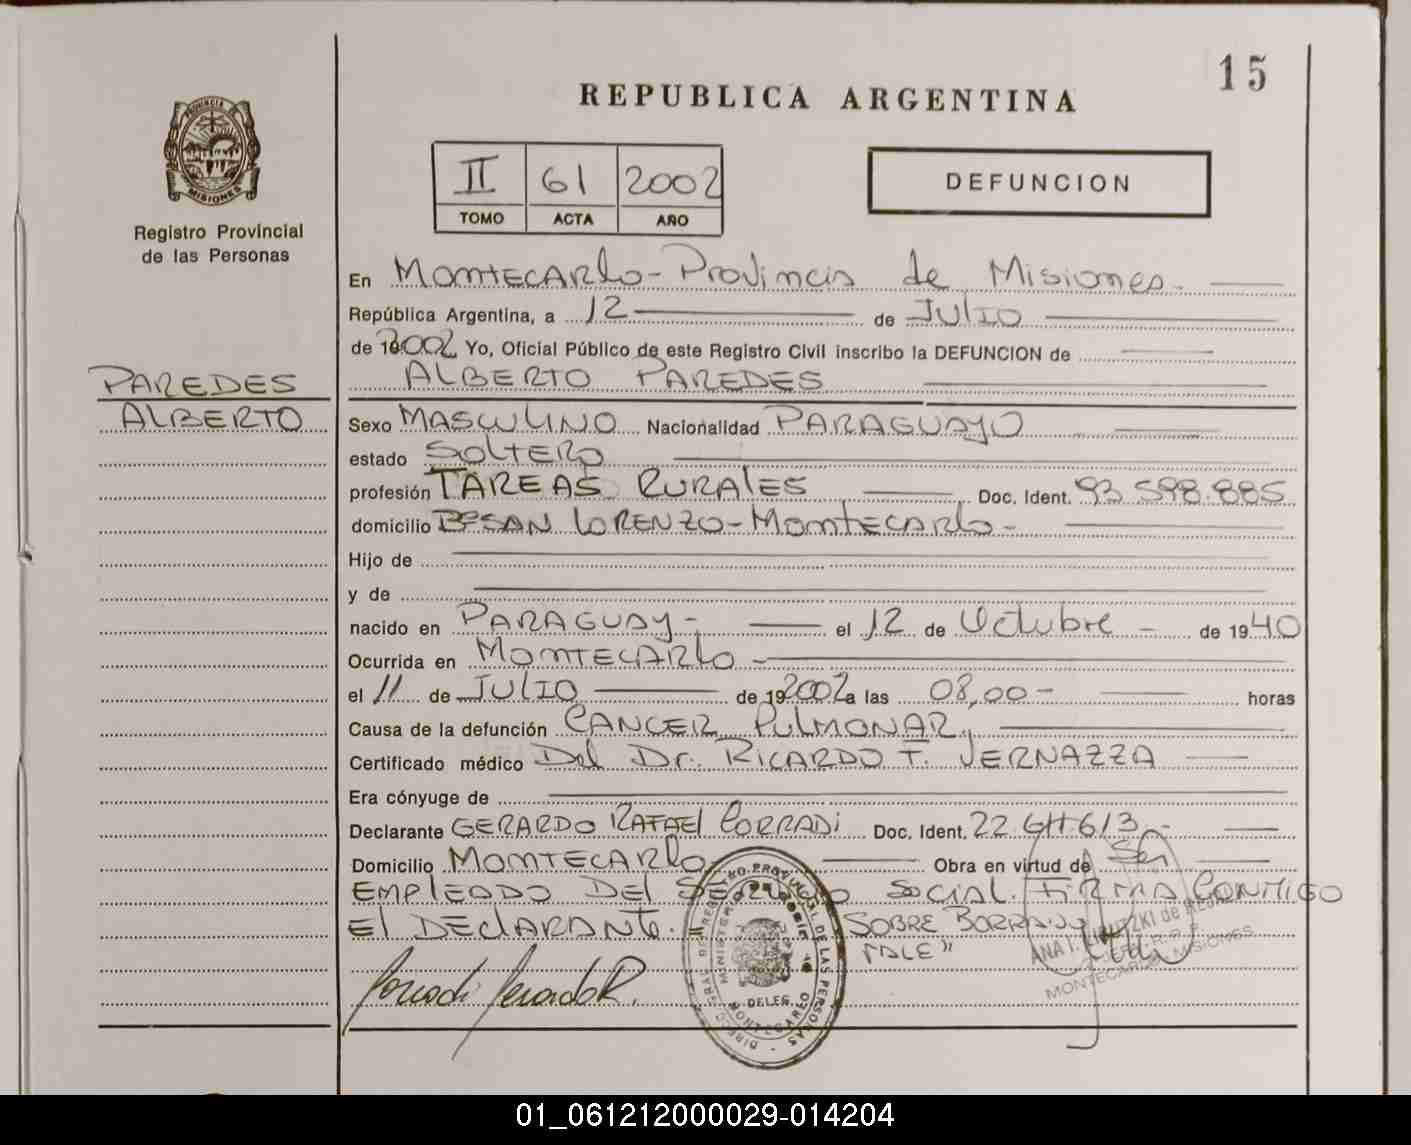 15
REPUBLICA ARGENTINA
PROVINCIA DE
MISIONES
Registro Provincial
de las Personas
II 61 2002
TOMO ACTA AÑO
DEFUNCION
En Montecarlo - Provincia de Misiones -
República Argentina, a 12 de Julio
de 2002 Yo, Oficial Público de este Registro Civil inscribo la DEFUNCION de
ALBERTO PAREDES
PAREDES
ALBERTO
Sexo MASCULINO Nacionalidad PARAGUAYO
estado SOLTERO
profesión TAREAS RURALES Doc. Ident. 93 598.885
domicilio Bº SAN LORENZO - Montecarlo -
Hijo de
y de
nacido en PARAGUAY - el 12 de Octubre - de 1940
Ocurrida en MONTECARLO -
el 11 de JULIO de 2002 a las 08,00 - horas
Causa de la defunción CANCER PULMONAR.
Certificado médico Del Dr. RICARDO T. VERNAZZA
Era cónyuge de
Declarante GERARDO RAFAEL CORRADI Doc. Ident. 22 611.613 -
Domicilio MONTECARLO Obra en virtud de Ser
EMPLEADO DEL SERVICIO SOCIAL. FIRMA CONMIGO
EL DECLARANTE. SOBRE BORRADO
"VALE"
Corradi Gerardo R.
DIREC. GRAL. DE REGISTRO PROVINCIAL DE LAS PERSONAS
MINISTERIO DE GOBIERNO
DELEG.
MONTECARLO
ANA I. de
MONTECARLO MISIONES
01_061212000029-014204